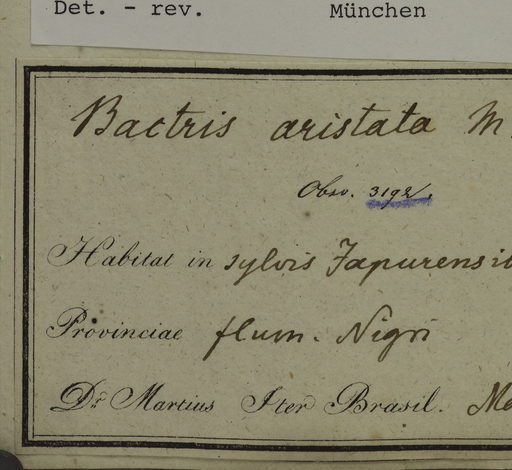 Det. - rev. München
Bactris aristata M
Obsv. 3192.
Habitat in sylvis Japurensib
Provinciae flum. Nigri
Dr. Martius Iter Brasil. Ma